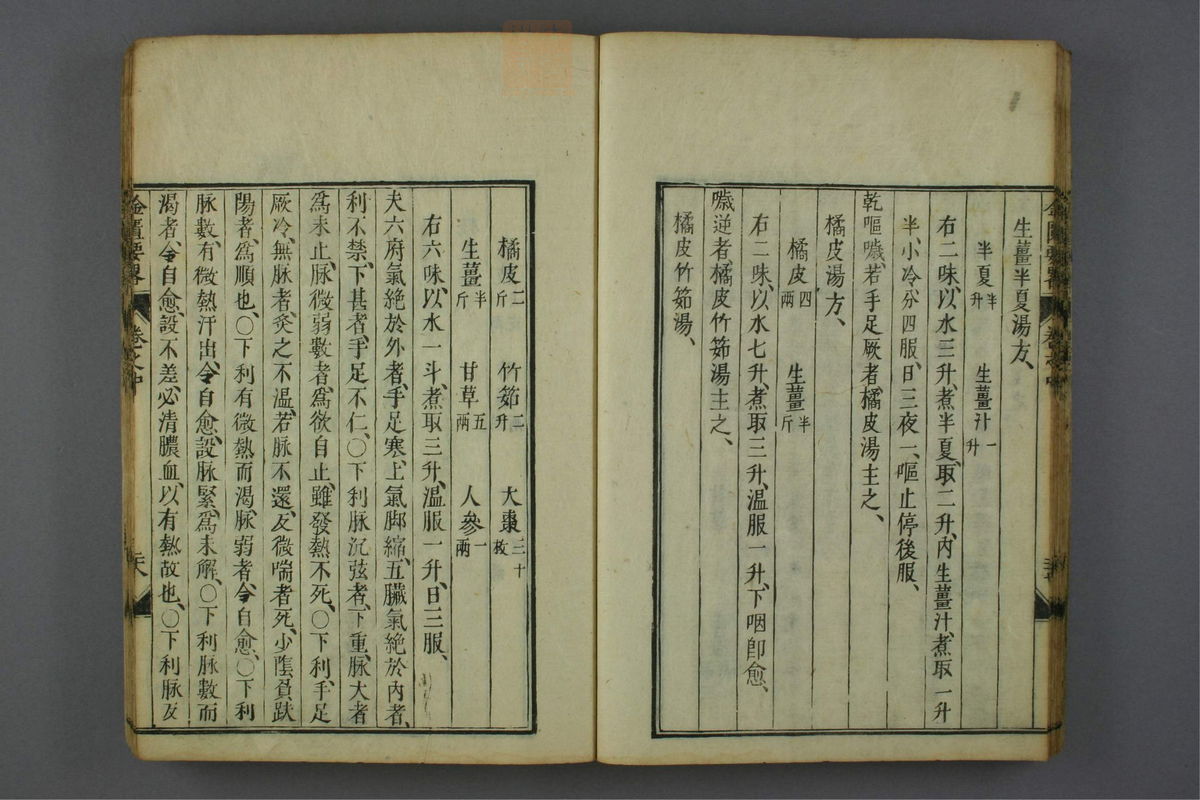 生薑半夏湯方、
半夏半升　生薑汁一升
右二味、以水三升、煮半夏、取二升、內生薑汁、煮取一升
半、小冷、分四服、日三夜一、嘔止停後服、
乾嘔噦、若手足厥者、橘皮湯主之、
橘皮湯方、
橘皮四兩　生薑半斤
右二味、以水七升、煮取三升、溫服一升、下咽卽愈、
噦逆者、橘皮竹筎湯主之、
橘皮竹筎湯、
橘皮二斤　竹筎二升　大棗三十枚
生薑半斤　甘草五兩　人參一兩
右六味、以水一斗、煮取三升、溫服一升、日三服、
夫六府氣絕於外者、手足寒、上氣脚縮、五臟氣絕於內者、
利不禁、下甚者、手足不仁、〇下利脉沉弦者、下重、脉大者
爲未止、脉微弱數者、爲欲自止、雖發熱不死、〇下利、手足
厥冷、無脉者、灸之不溫、若脉不還、反微喘者死、少陰負趺
陽者、爲順也、〇下利有微熱而渴、脉弱者、令自愈、〇下利
脉數、有微熱汗出、令自愈、設脉緊、爲未解、〇下利脉數而
渴者、令自愈、設不差、必清膿血、以有熱故也、〇下利脉反
金匱要畧　卷之中